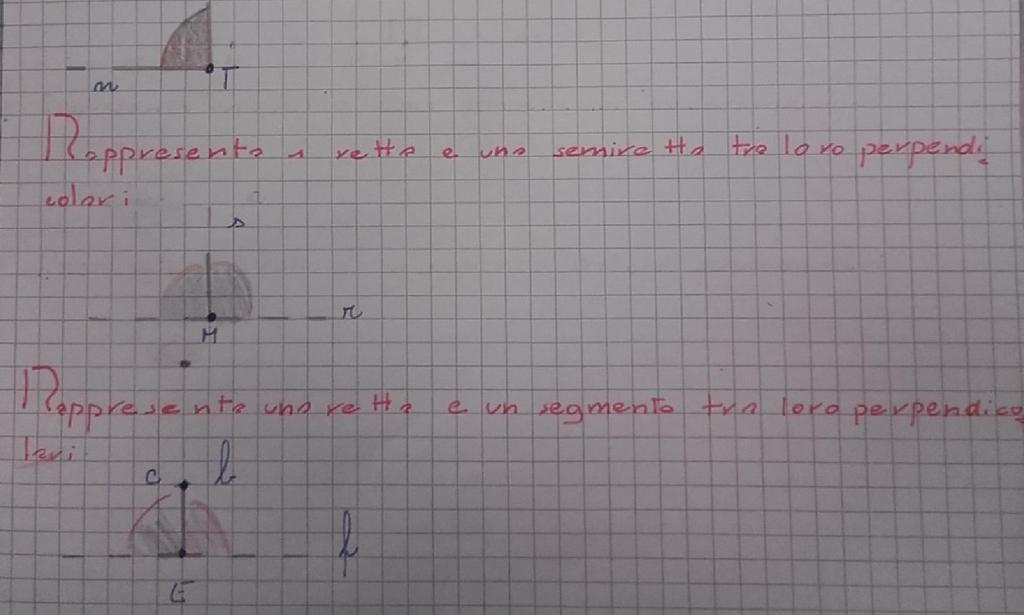 m T
Rappresento 1 retta e una semiretta tra loro perpendi
colari
s
r
M
Rappresento una retta e un segmento tra loro perpendico
lari
C l
f
E